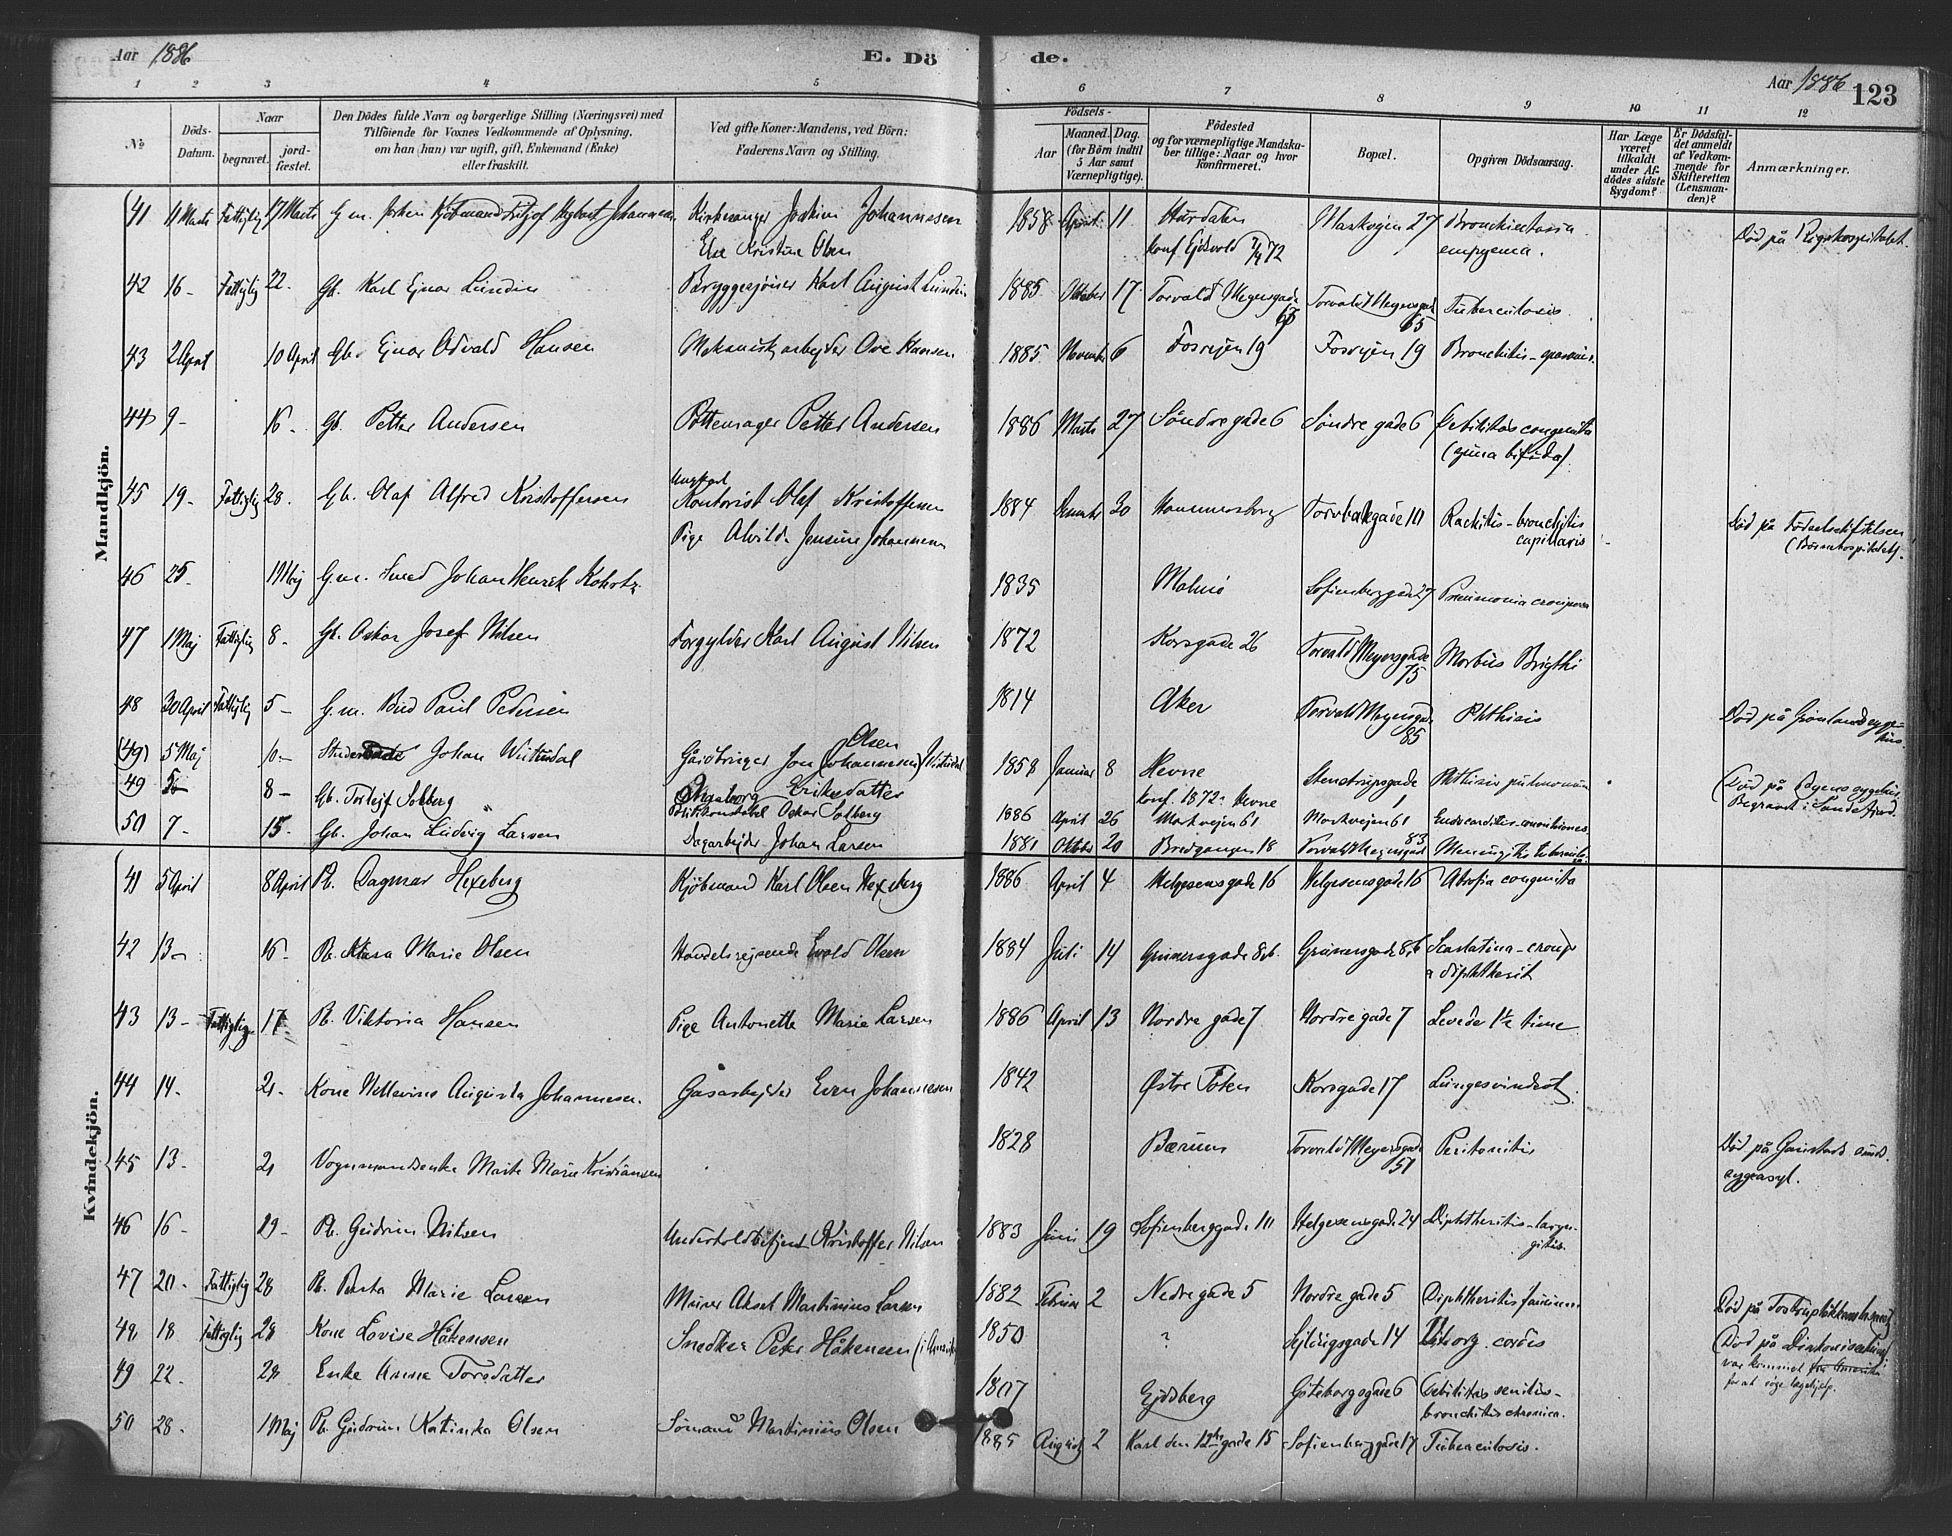 Aar 1886
E. Dö
de.
Aar 1886
123
1 2 3 4 5
6 7 8 9 10 11 12
No
Döds-Datum.
Naar
begravet.
jordfæstet.
Den Dödes fulde Navn og borgerlige Stilling (Næringsvei) med
Tilföiende for Voxnes Vedkommende af Oplysning,
om han (hun) var ugift, gift, Enkemand (Enke)
eller fraskilt.
Ved gifte Koner: Mandens, ved Börn:
Faderens Navn og Stilling.
Födsels-
Aar
Maaned. Dag.
(for Börn indtil
5 Aar samt
Værnepligtige).
Födested
og for værnepligtige Mandskaber tillige: Naar og hvor
konfirmeret.
Bopæl.
Opgiven Dödsaarsag.
Har Læge
været
tilkaldt
under Afdödes sidste
Sygdom?
Er Dödsfaldet anmeldt
af Vedkommende for
Skifteretten
(Lensmanden)?
Anmærkninger.
Mandkjön.
41 11 Marts Fattiglig 17 Marts G.m. Kjöbmand Johannesen Kirkesanger Joakim Johannesen 1858 April 11 Hurdalen Markvejen 27 Bronchiectasia Död på Rigshospitalet.
Else Kristine Olsen Konf. Ejdsvold 72 empyema.
42 16 - Fattiglig 22. Gb. Karl Ejnar Lundin Bryggesjouer Karl August Lundin 1885 Oktober 17 Torvald Meyersgade 65 Torvald Meyersgade 65 Tuberculosis.
43 2 April 10 April Gb. Ejnar Odvald Hansen Mekanisk arbejder Ove Hansen 1885 Novembr 6 Fosvejen 19 Fosvejen 19 Bronchitis -
44 9 - 16 - Gb. Petter Andersen Pottemager Petter Andersen 1886 Marts 27 Söndre gade 6 Söndre gade 6 Debilitas congenita
(spina bifida).
45 19 - Fattiglig 28. Gb. Olaf Alfred Kristoffersen Ungkarl
Kontorist Olaf Kristoffersen 1884 Decembr 30 Hammersborg Torvbakgade 10 Rachitis - bronchitis capillaris Död på Födselsstiftelsen
Pige Alvilde Jensine Johannesen (Börnehospitalet).
46 25. 1 Maj G.m. Smed Johan Henrik 1835 Malmö Sofienberggade 27 Pneumonia crouposa
47 1 Maj Fattiglig 8 - Gb. Oskar Josef Nilsen Forgylder Karl August Nilsen 1872 Korsgade 26 Torvald Meyersgade 75 Morbus Brigthi
48 30 April Fattiglig 5 - G.m. Bud Paul Pedersen 1814 Aker Torvald Meyersgade 85 Phthisis Död på Grönlands sygehus.
(49) 5 Maj 10 - Student Johan Wistendal Gårdbruger Jon (Johannesen) Olsen Wistendal 1858 Januar 8 Hevne Stenstrupsgade 1 Phthisis pulmonum (Död på Byens sygehus
Ingeborg Eriksdatter konf. 1872. Hevne Begravet i Sandefjord.
49 5 8 - Gb. Torlejf Solberg Politikonstabel Oskar Solberg 1886 April 26 Markvejen 61 Markvejen 61 Endocarditis -
50 7 - 15. Gb. Johan Ludvig Larsen Dagarbejder Johan Larsen 1881 Oktober 20 Bredgangen 18 Torvald Meyersgad 83 Meningitis tuberculosa.
Kvindekjön.
41 5 April 8 April Pb. Dagmar Hexeberg Kjöbmand Karl Olsen Hexeberg 1886 April 4 Helgesensgade 16 Helgesensgade 16 Atrofia congenita
42 13 - 16 - Pb. Klara Marie Olsen Handelsrejsende Evald Olsen 1884 Juli 14 Grünersgade 8b. Grünersgade 8b Scarlatina - croup
a diphtherit
43 13 - Fattiglig 17 Pb. Viktoria Hansen Pige Antonette Marie Larsen 1886 April 13 Nordre gade 7 Nordre gade 7 Levede 1½ time
44 14. 21. Kone Augusta Johannesen. Gasarbejder Even Johannesen 1842 Østre Toten Korsgade 17 Lungesvindsot.
45 13. 21 Vognmandsenke Marte Marie Kristiansen 1828 Bærum Torvald Meyersgade 51 Peritonitis Död på Gaustads sindssygeasyl.
46 16 - 19 - Pb. Gudrun Nilsen Underholdbetjent Kristoffer Nilsen 1883 Juni 19 Sofienberggade 10 Helgesensgade 24 Diphtheritis - laryngitis.
47 20 - Fattiglig 28 Pb. Berta Marie Larsen Murer Aksel Martinius Larsen 1882 Februar 2 Nedre gade 5 Nordre gade 5 Diphtheritis faucium Död på
48 18 Fattiglig 28 Kone Lovise Håkensen Snedker Peter Håkensen (i Amerika) 1850 ? Sejldugsgade 14 cordis (Död på Diakonissehuset
var kommet fra Amerika
for at söge lægehjelp.
49 22. 28 Enke Anna Torsdatter 1807 Ejdsberg Göteborgsgade 6 Debilitas senilis -
bronchitis chronica.
50 28. 1 Maj Pb. Gudrun Katinka Olsen Sömand Martinius Olsen 1885 August 2 Karl den 12tes gade 15 Sofienberggade 17 Tuberculosis.